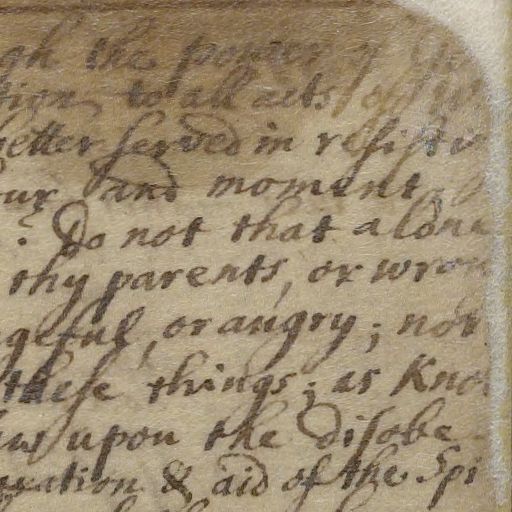 gh the power of
tion to all acts of
better served in resist
our and moment
. Do not that alone
thy parents, or wron
geful, or angry; nor
these things; as Kno
upon the disobe
uation & aid of the Spi